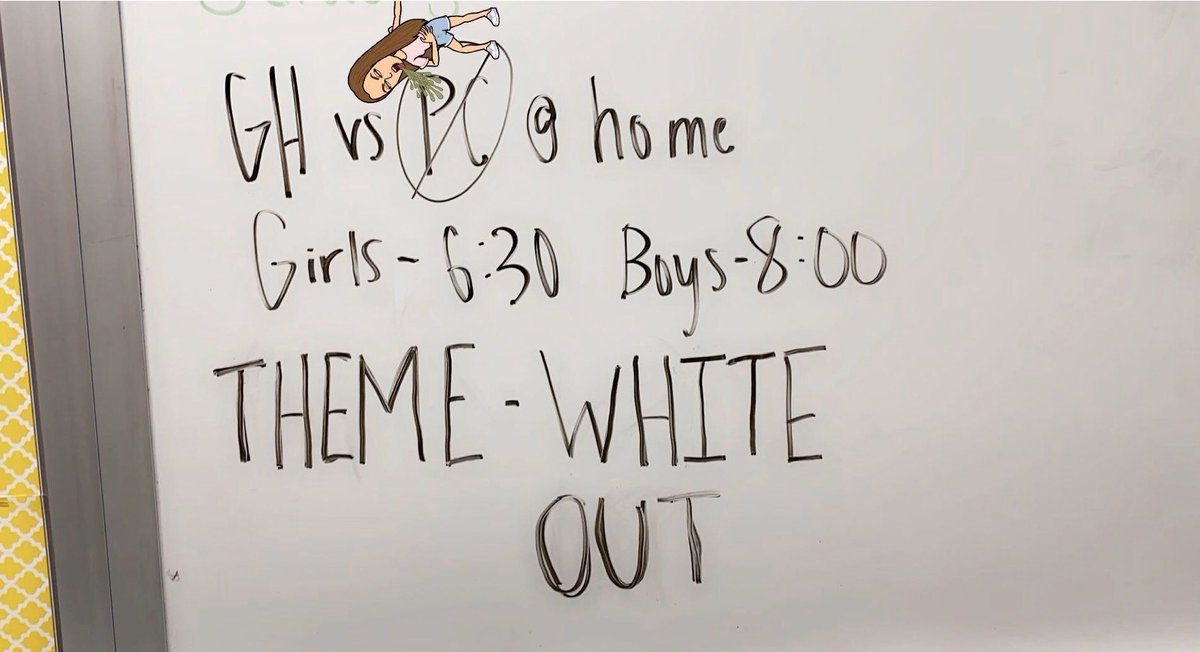 GH vs PC @ home
Girls - 6:30 Boys - 8:00
THEME - WHITE
OUT